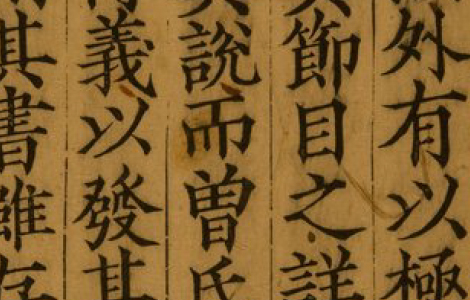 外有以極
其節目之詳
其說而曾氏
義以發其
其書雖存